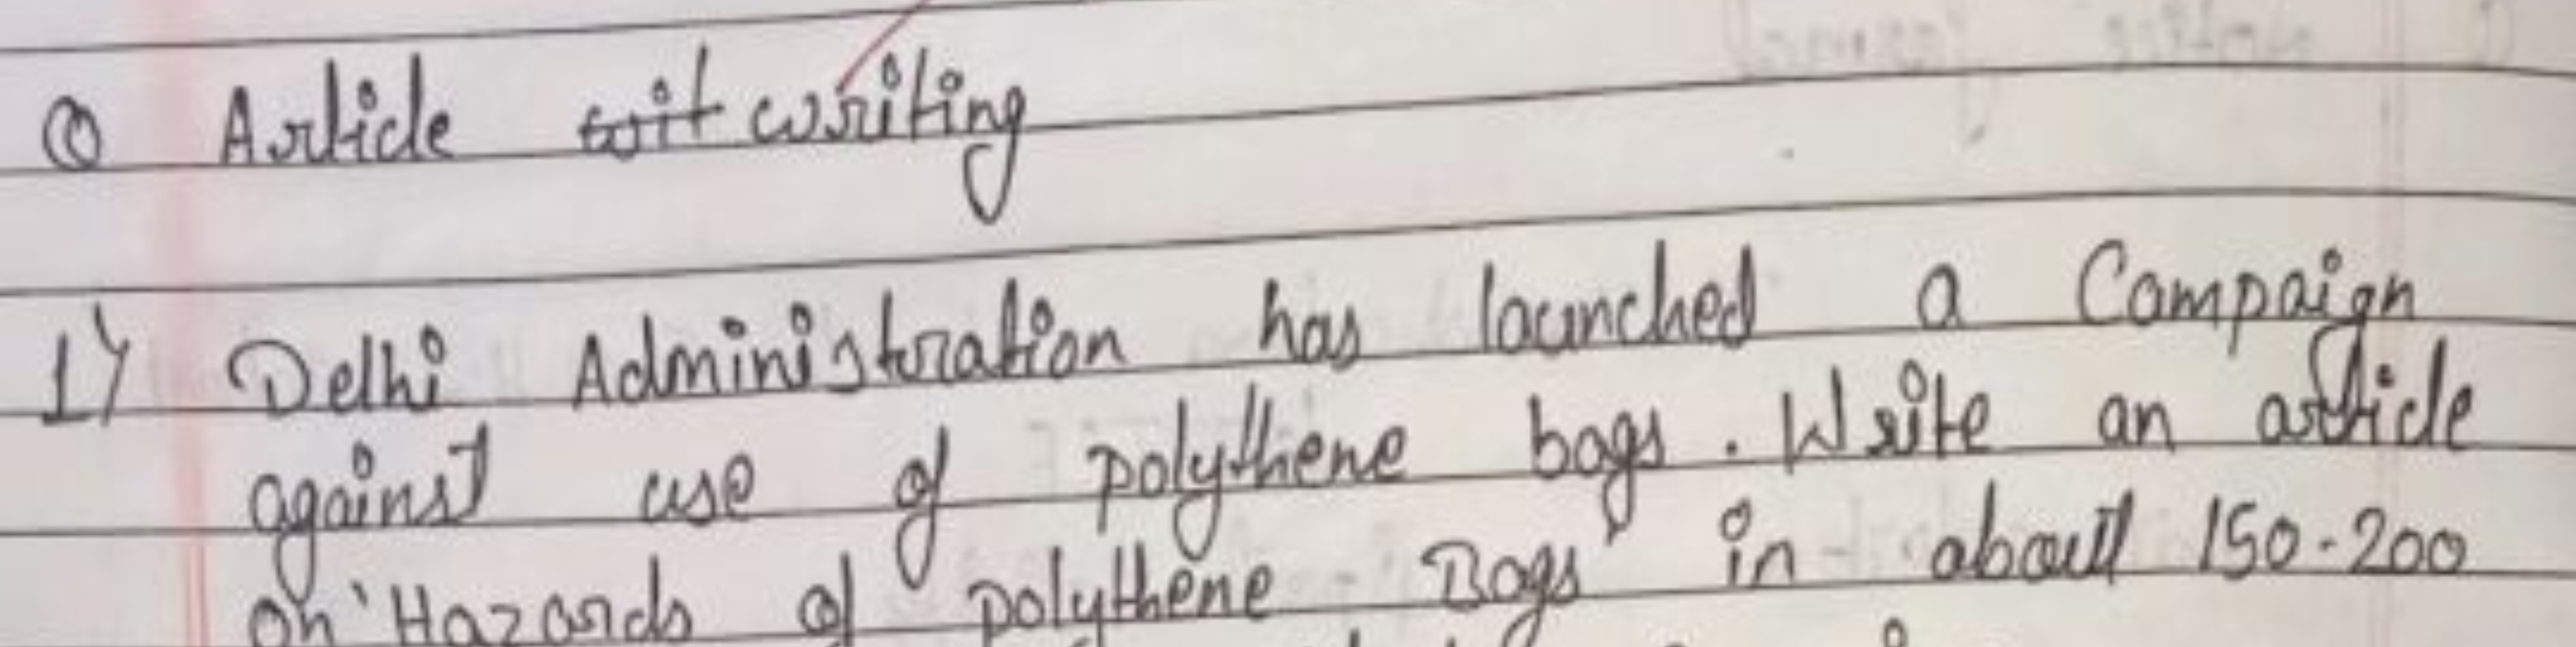 Q Article writing
1) Delhi Administration has launched a Campaign
against use of polythene bags. Write an article
on 'Hazards of polythene Bags' in about 150-200